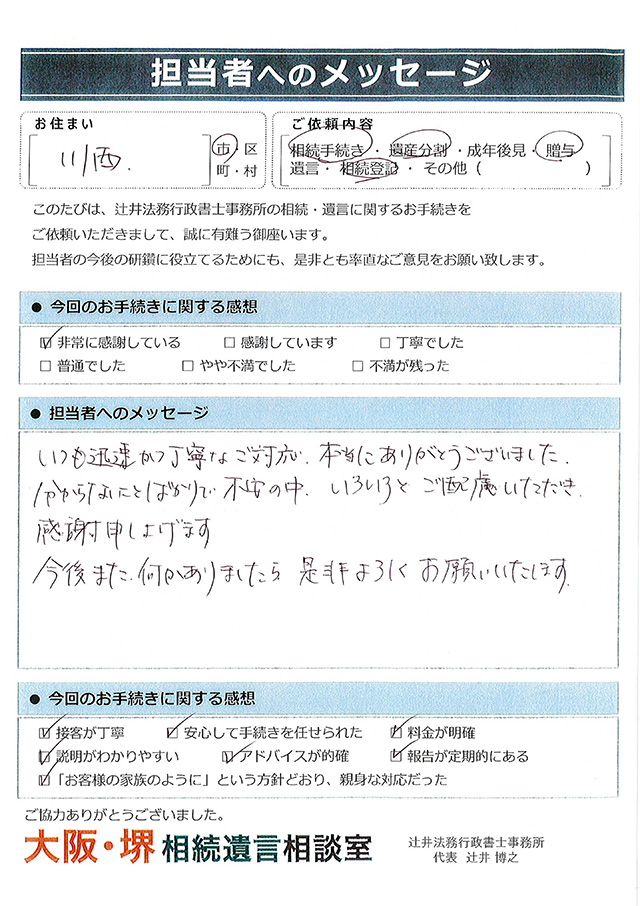 担当者へのメッセージ
お住まい
川西. 市・区
町・村
ご依頼内容
相続手続き・遺産分割・成年後見・贈与
遺言・相続登記・その他( )
このたびは、辻井法務行政書士事務所の相続・遺言に関するお手続きを
ご依頼いただきまして、誠に有難う御座います。
担当者の今後の研鑽に役立てるためにも、是非とも率直なご意見をお願い致します。
● 今回のお手続きに関する感想
☑ 非常に感謝している □ 感謝しています □ 丁寧でした
□ 普通でした □ やや不満でした □ 不満が残った
● 担当者へのメッセージ
いつも迅速かつ丁寧なご対応、本当にありがとうございました.
分からないことばかりで不安の中、いろいろとご配慮いただき、
感謝申し上げます
今後また、何かありましたら是非よろしくお願いいたします.
● 今回のお手続きに関する感想
☑ 接客が丁寧 ☑ 安心して手続きを任せられた ☑ 料金が明確
☑ 説明がわかりやすい ☑ アドバイスが的確 ☑ 報告が定期的にある
☑ 「お客様の家族のように」という方針どおり、親身な対応だった
ご協力ありがとうございました。
大阪・堺 相続遺言相談室
辻井法務行政書士事務所
代表 辻井 博之